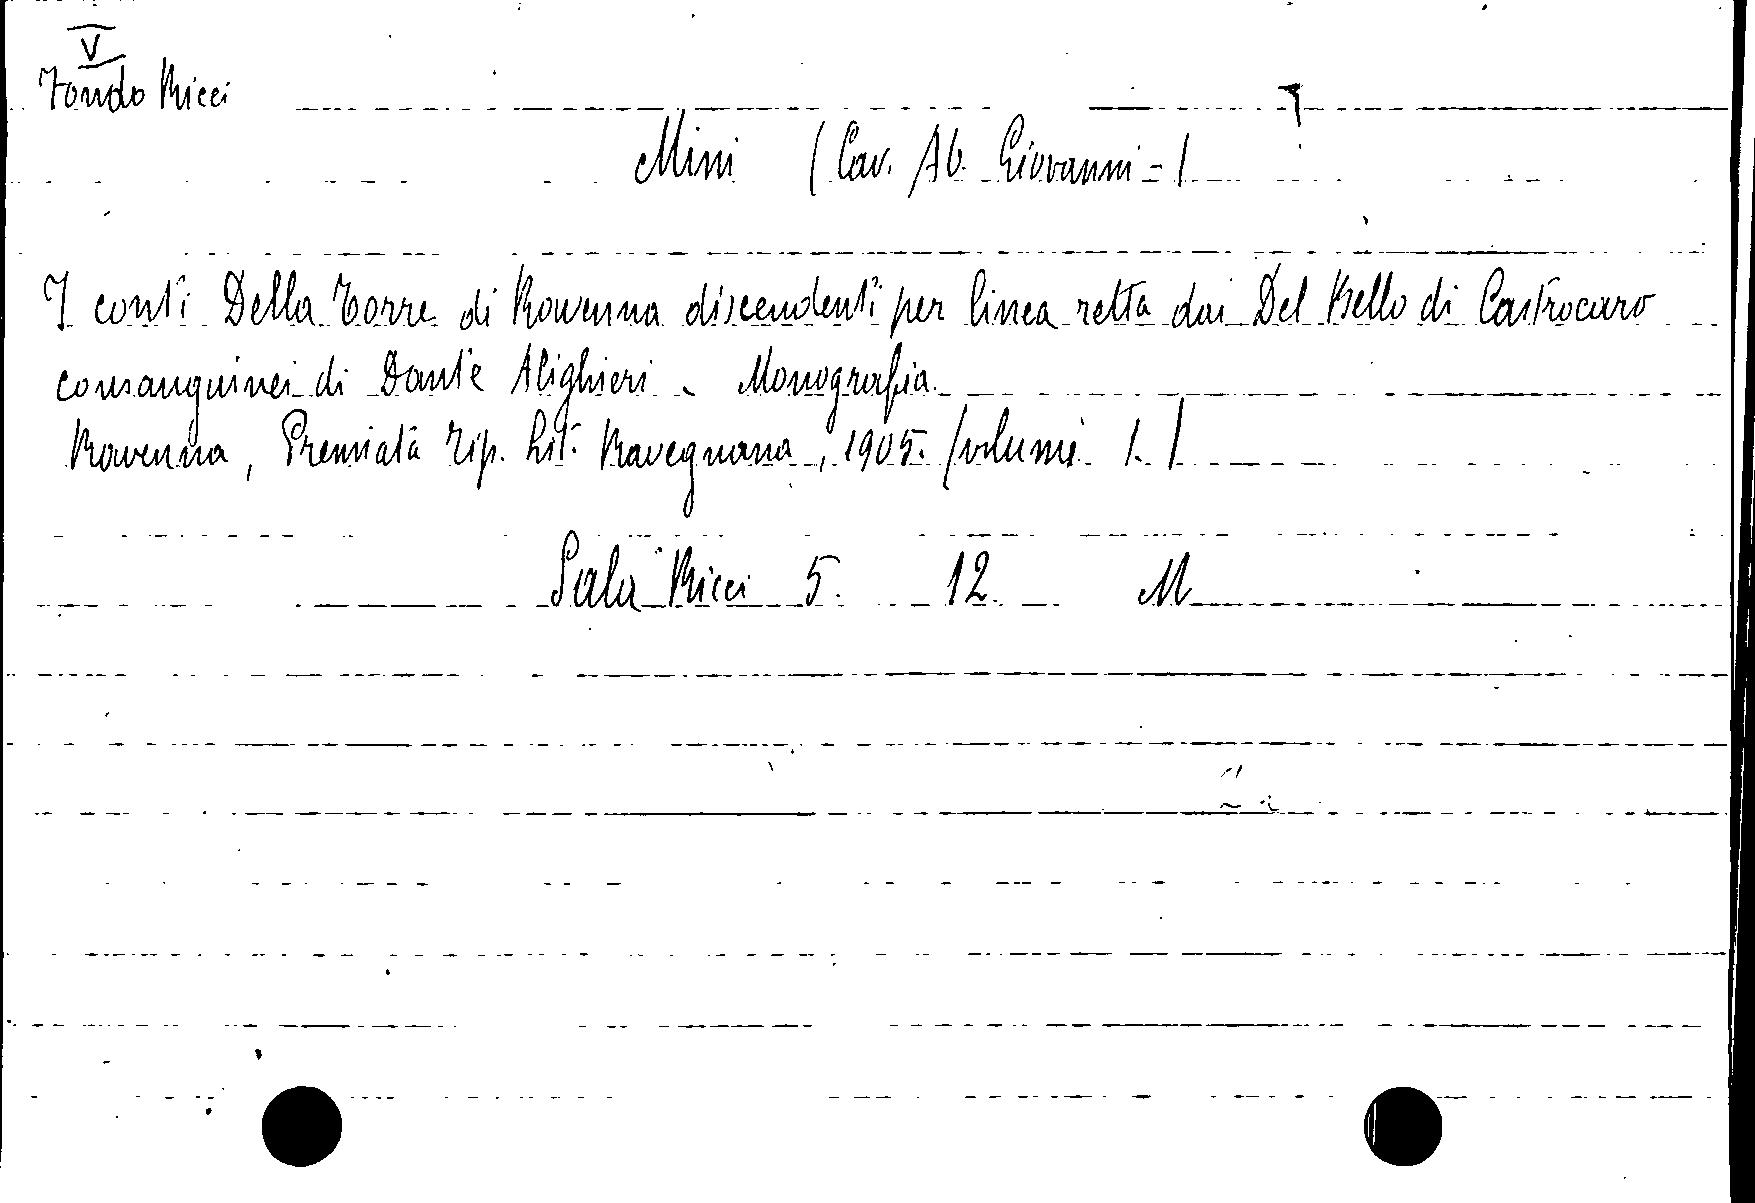 V
Fondo Ricci
Mini (Cav. Ab. Giovanni - )
I conti Della Torre di Ravenna discendenti per linea retta dai Del Bello di Castrocaro
consanguinei di Dante Alighieri - Monografia.
Ravenna, Premiata Tip. Lit. Ravegnana, 1905. (volumi 1.)
Sala Ricci 5. 12. M